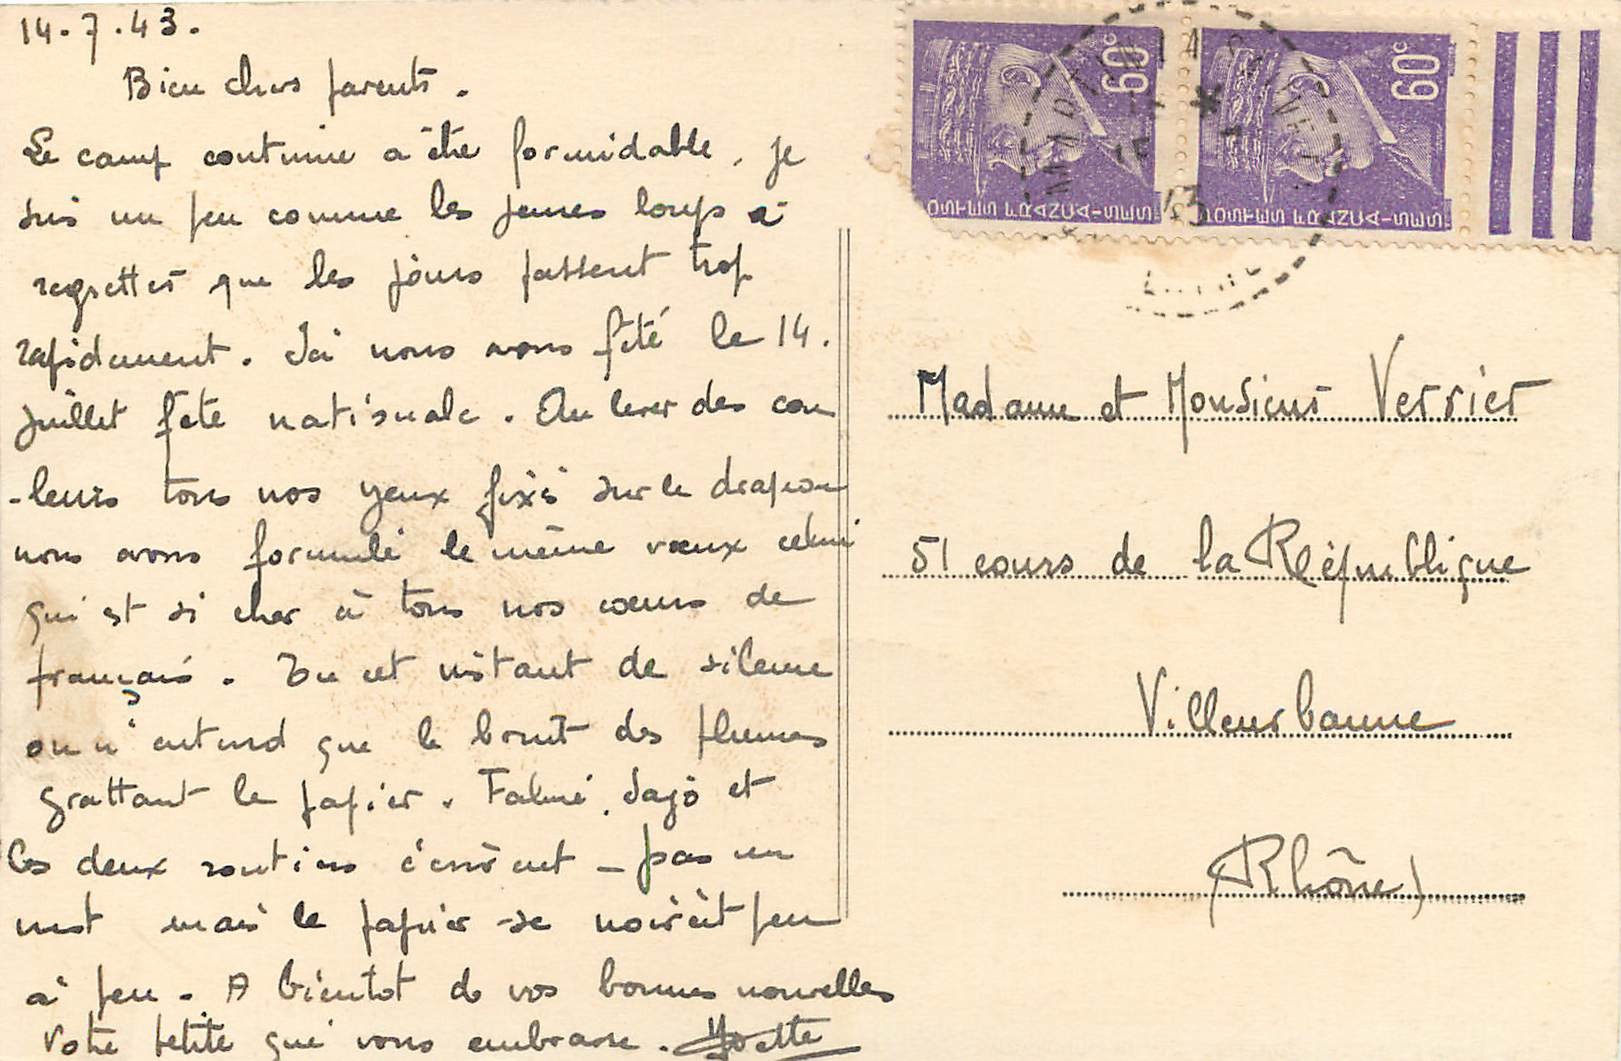 14.7.43.
Bien chers parents.
Le camp continue à être formidable, je
suis un peu comme les jeunes loups à
regretter que les jours passent trop
rapidement. Ici nous avons fêté le 14.
Juillet fête nationale. Au lever des cou
-leurs tous nos yeux fixés sur le drapeau
nous avons formulé le même vœux celui
qui est si cher à tous nos cœurs de
français. En cet instant de silence
on n'entend que le bruit des plumes
grattant le papier. et
les deux écrivent - pas un
mot mais le papier se noircit peu
à peu. A bientot de vos bonnes nouvelles
Votre petite qui vous embrasse. Yvette
60c
60c
POSTES FRANÇAISES
POSTES FRANÇAISES
15
43
Madame et Monsieur Verrier
51 cours de la République
Villeurbanne
(Rhône)